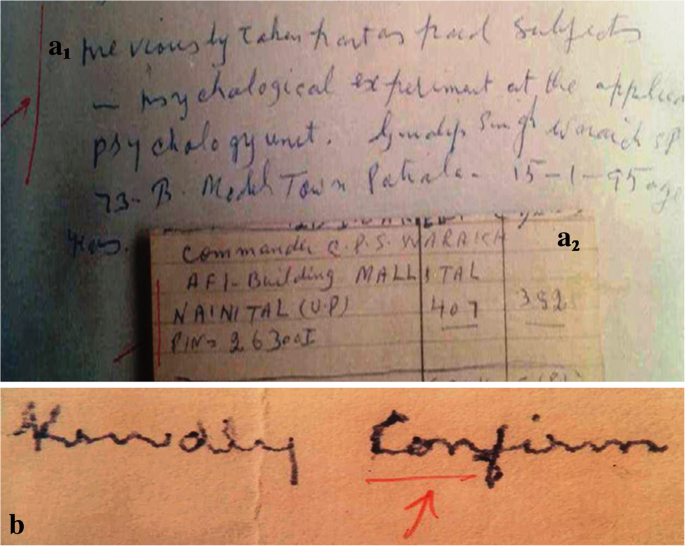 a1 previously taken part as paid subjects
psychological experiment at the applied
psychology unit. Gurdip Singh Waraich SP
73-B. Model Town Patiala - 15-1-95 age
Years.
a2
Commander C.P.S. WARAICH
AFI-Building MALLITAL
NAINITAL (U.P) 407 392
PIN = 263001
b Kindly Confirm